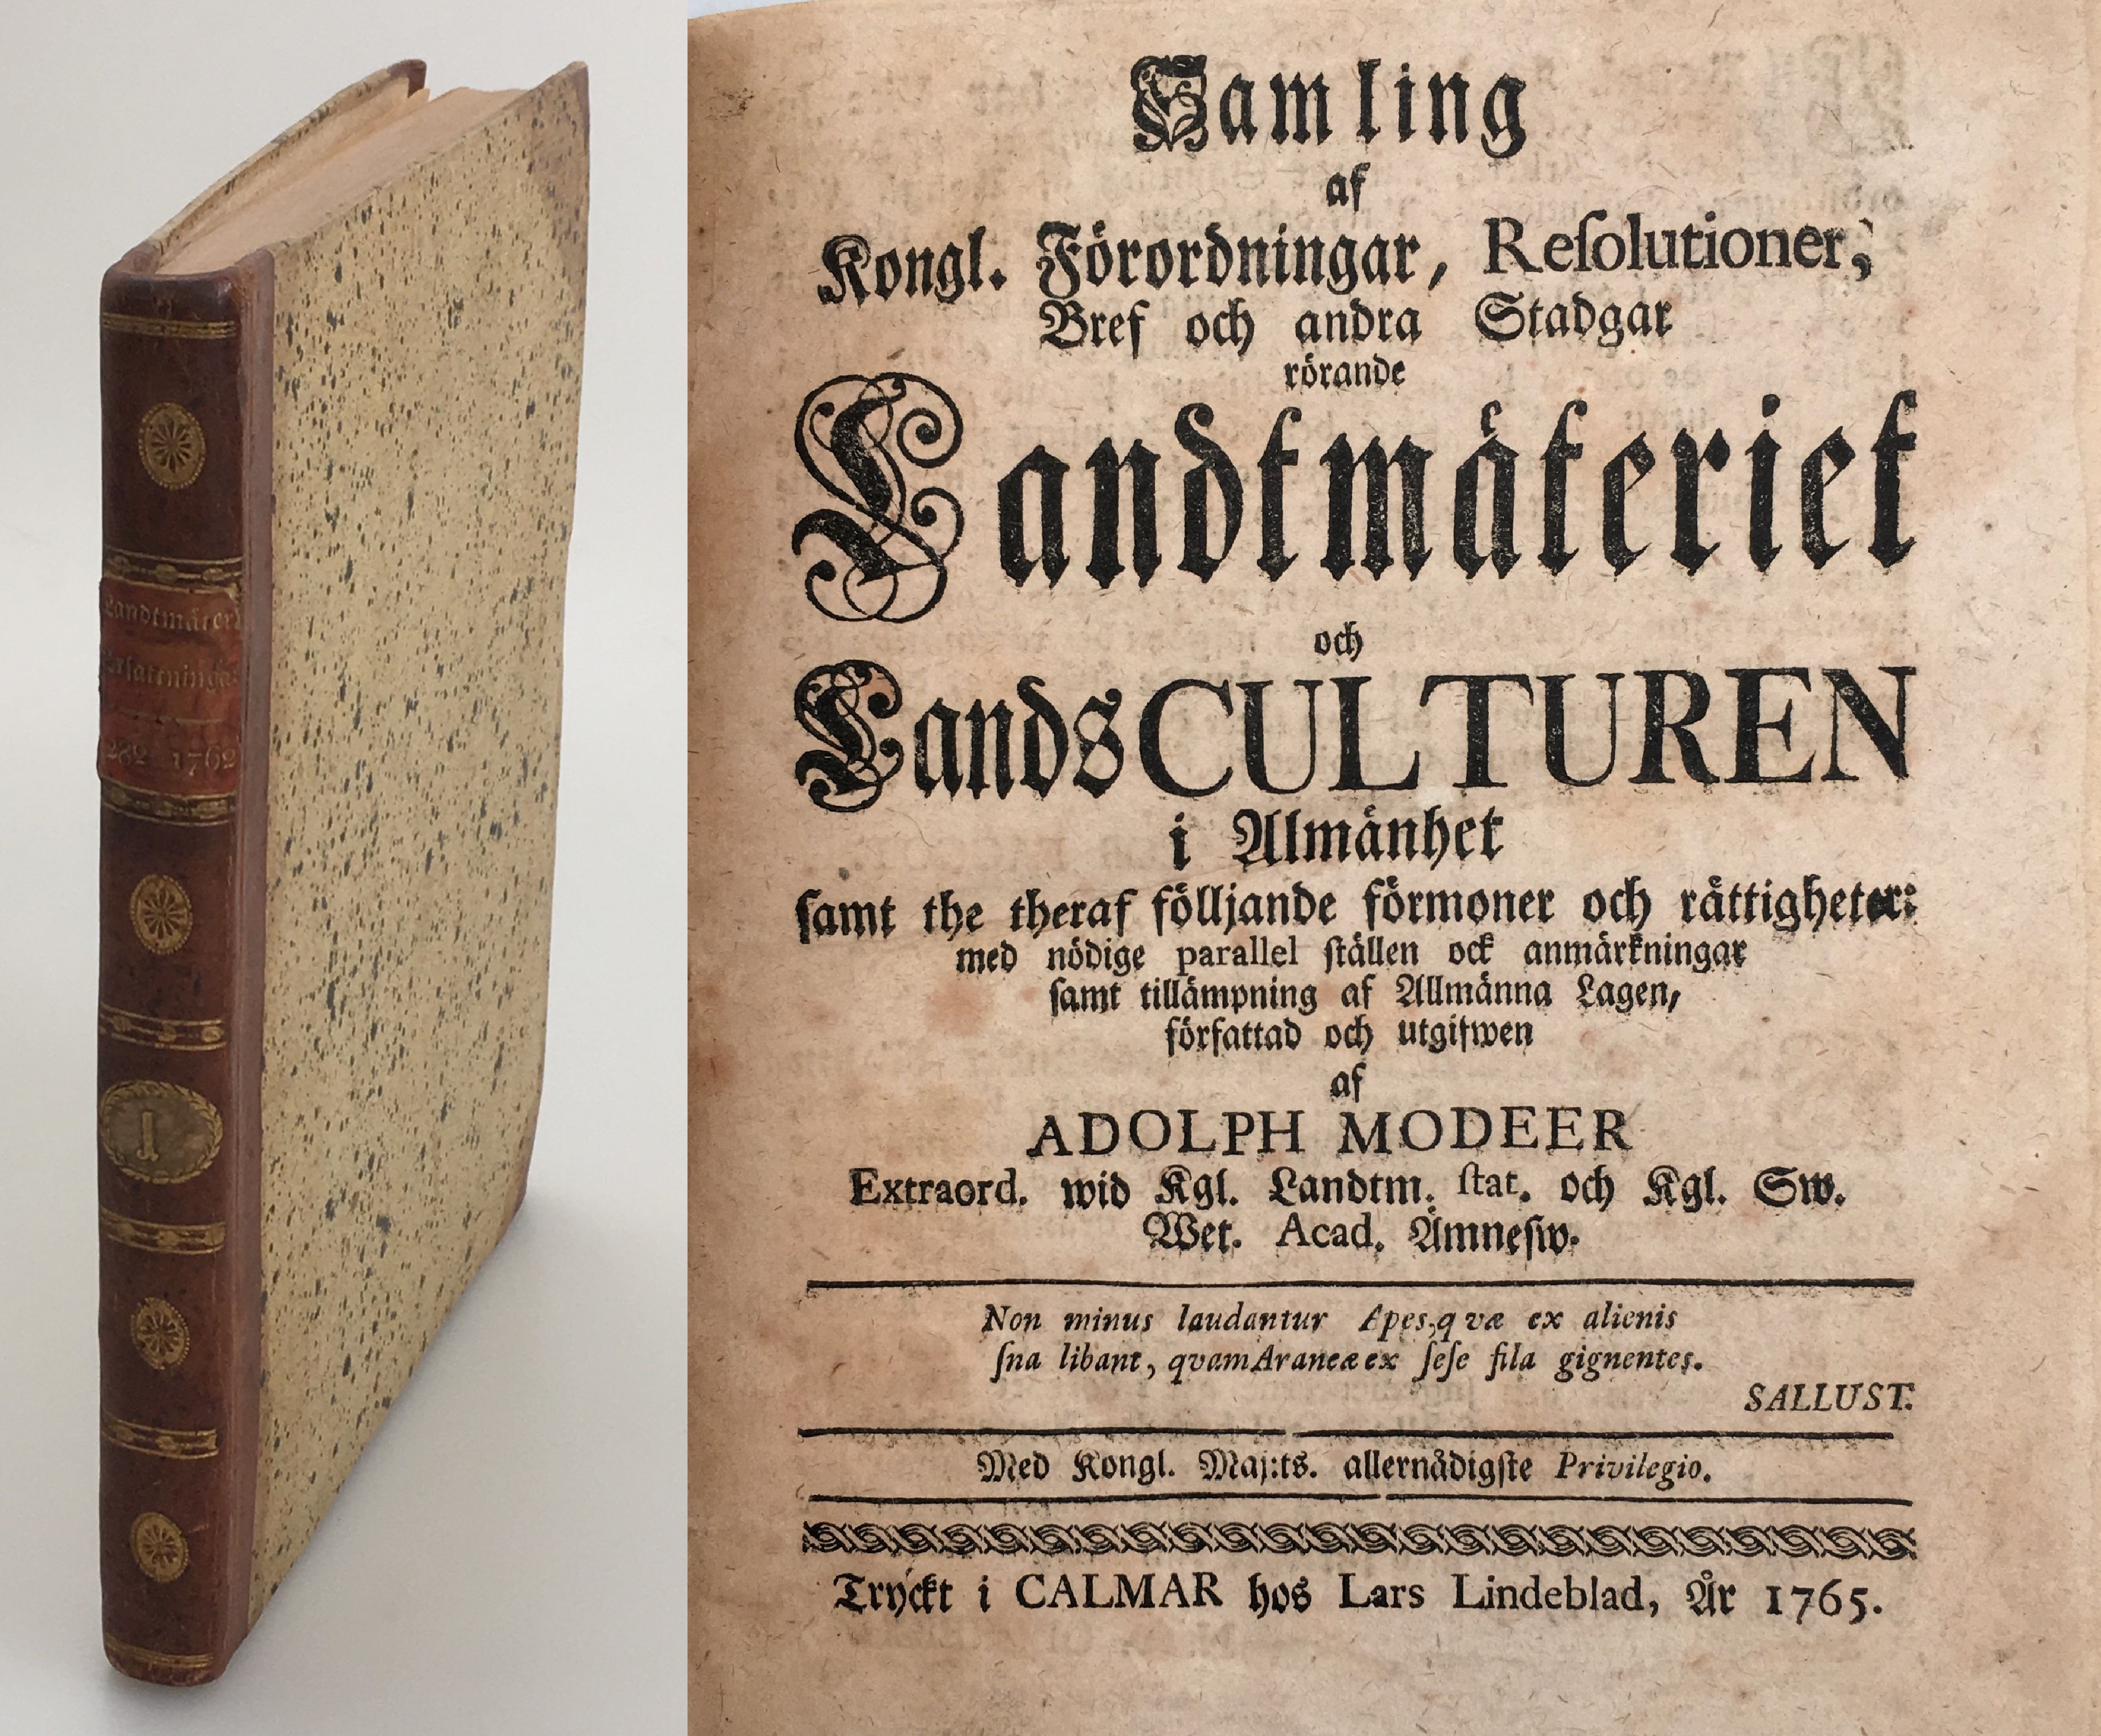 Landtmäter
282 1762
1
Samling
af
Kongl. Förordningar, Reſolutioner,
Bref och andra Stadgar
rörande
Landtmäteriet
och
LandsCULTUREN
i Almänhet
ſamt the theraf följljande förmoner och rättigheter:
med nödige parallel ſtällen ock anmärkningar
ſamt tillämpning af Allmänna Lagen,
författad och utgifwen
af
ADOLPH MODEER
Extraord. wid Kgl. Landtm. ſtat. och Kgl. Sw.
Wet. Acad. Ämneſw.
Non minus laudantur Apes, qvæ ex alienis
ſna libant, qvam Araneæ ex ſeſe fila gignentes.
SALLUST.
Med Kongl. Maj:ts. allernådigſte Privilegio.
Tryckt i CALMAR hos Lars Lindeblad, År 1765.